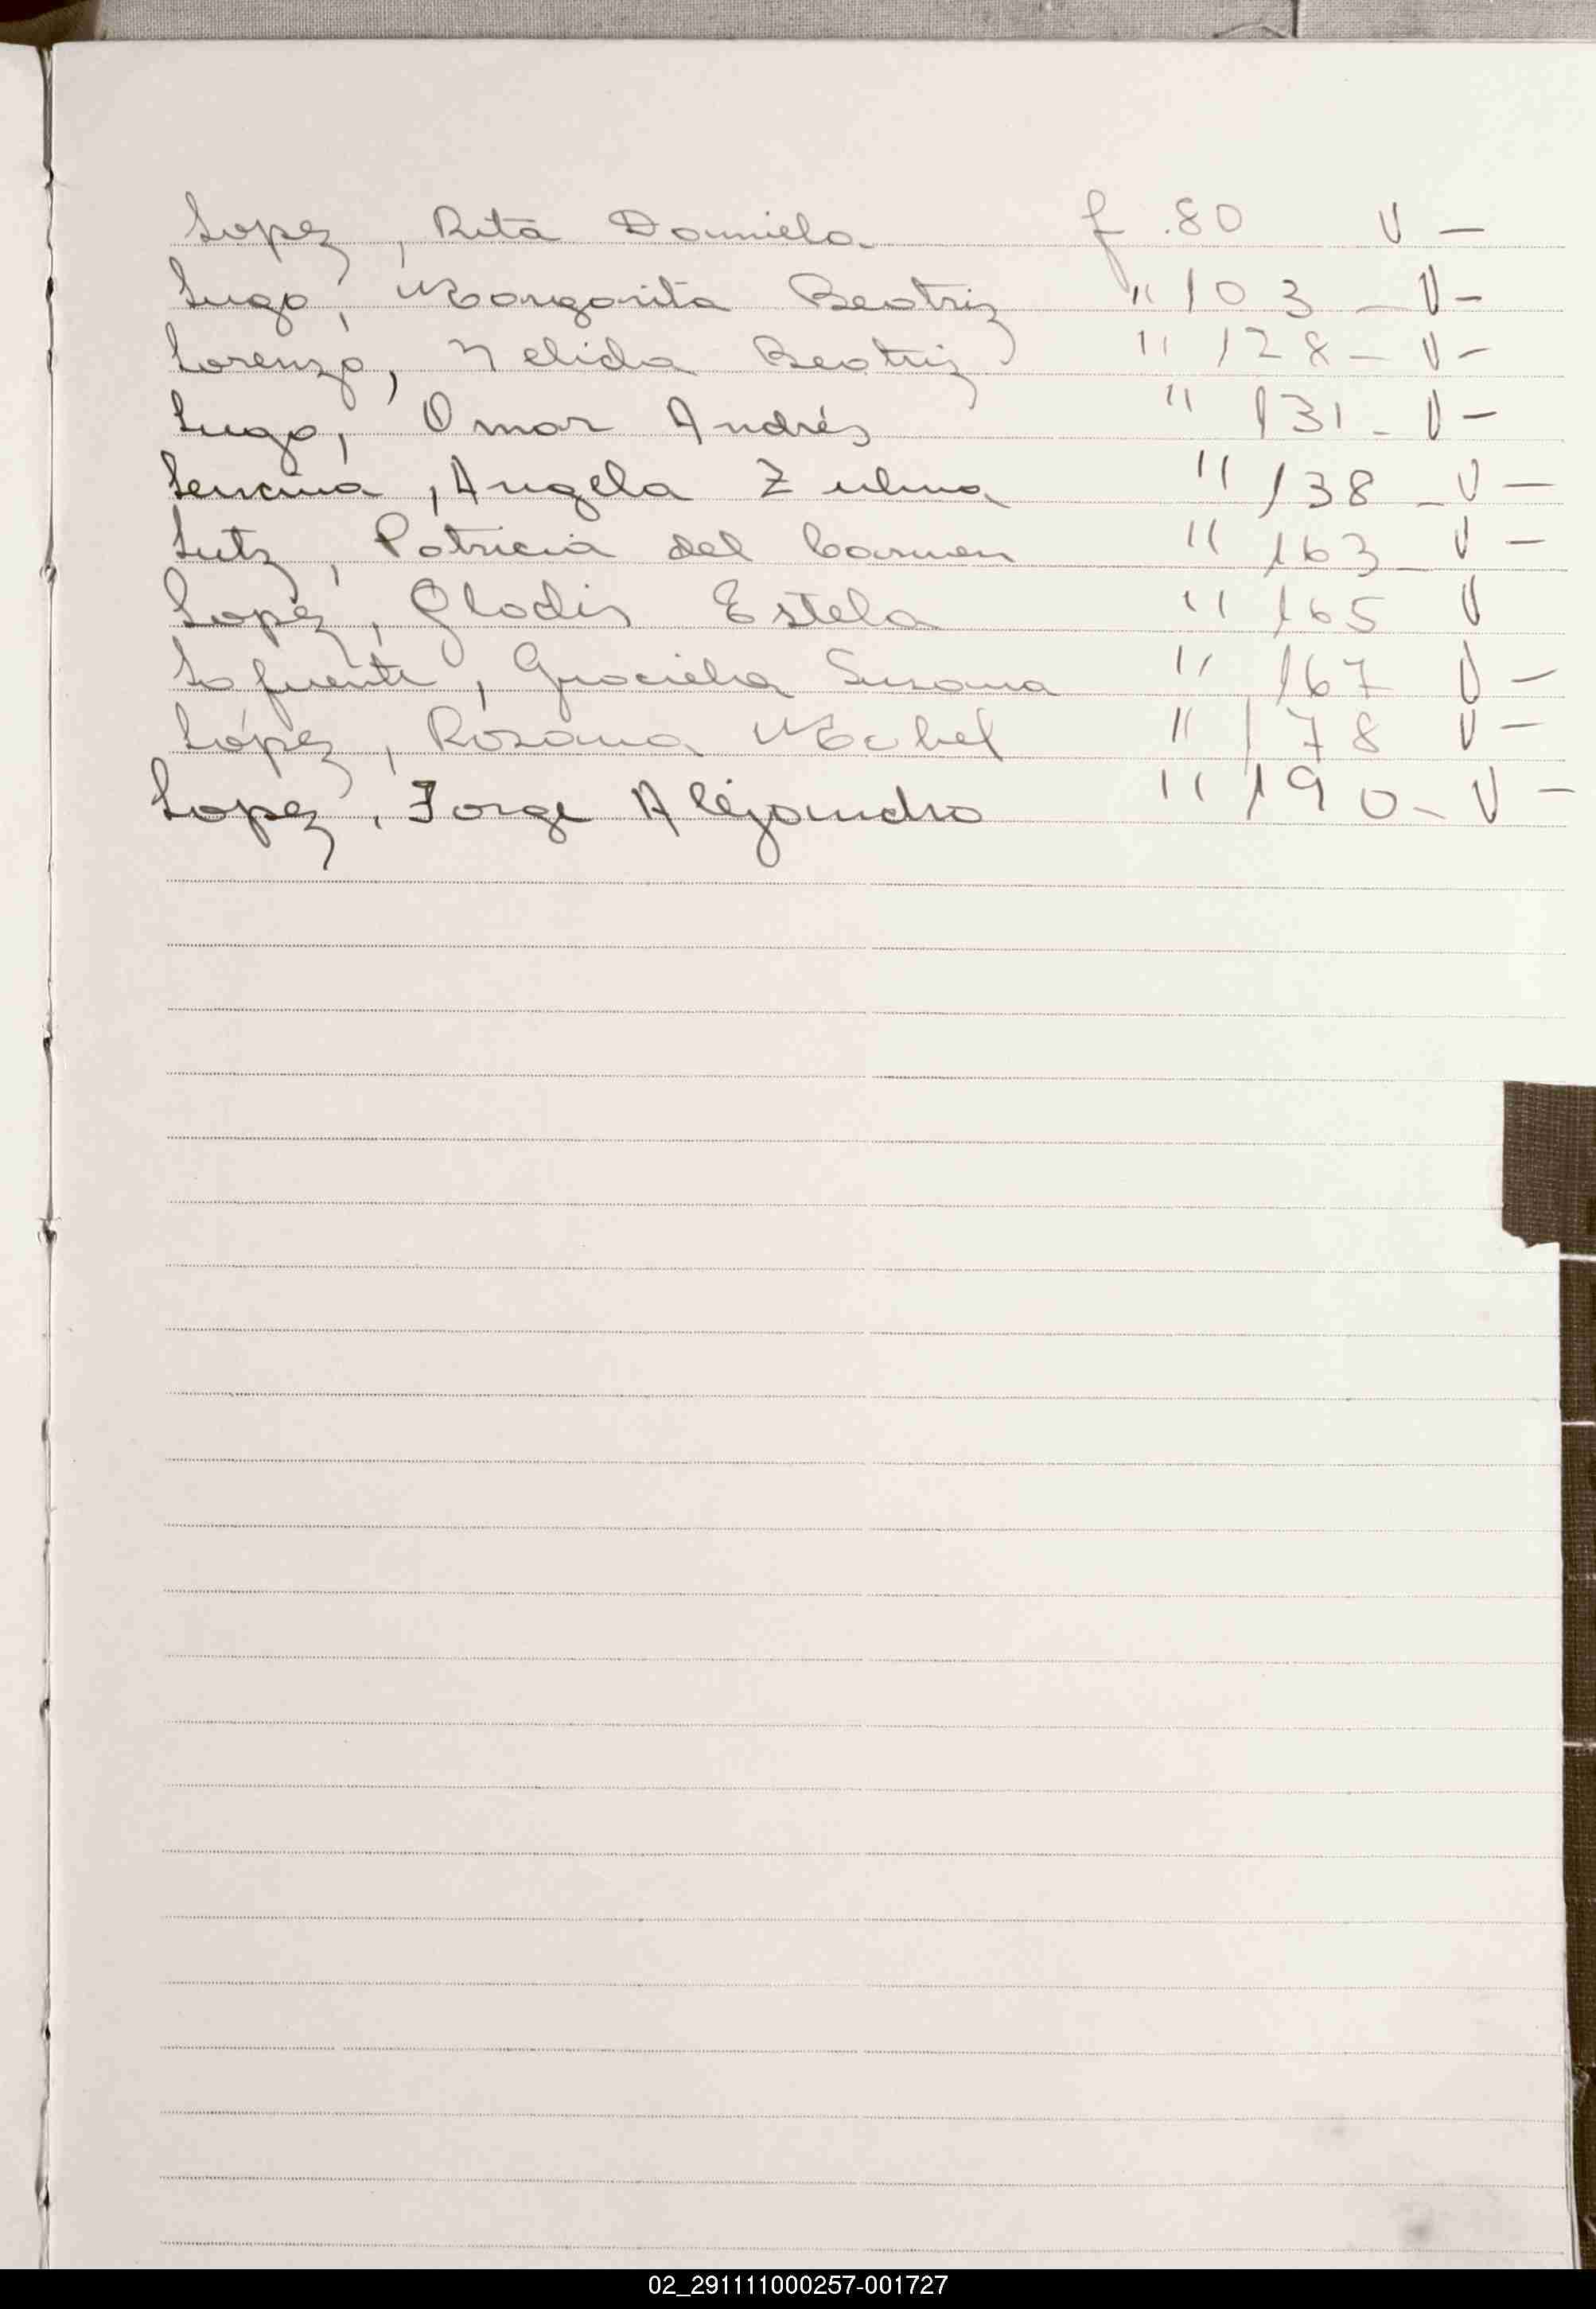 Lopez, Rita Daniela f. 80 V –
Lugo, Margarita Beatriz " 103 – V –
Lorenzo, Nelida Beatriz " 128 – V –
Lugo, Omar Andrés " 131 – V –
, Angela Zulma " 138 – V –
Lutz, Patricia del Carmen " 163 – V –
Lopez, Gladis Estela " 165 V
Lafuente, Graciela Susana " 167 V –
López, Rosana Mabel " 178 V –
Lopez, Jorge Alejandro " 190 – V –
02_291111000257-001727